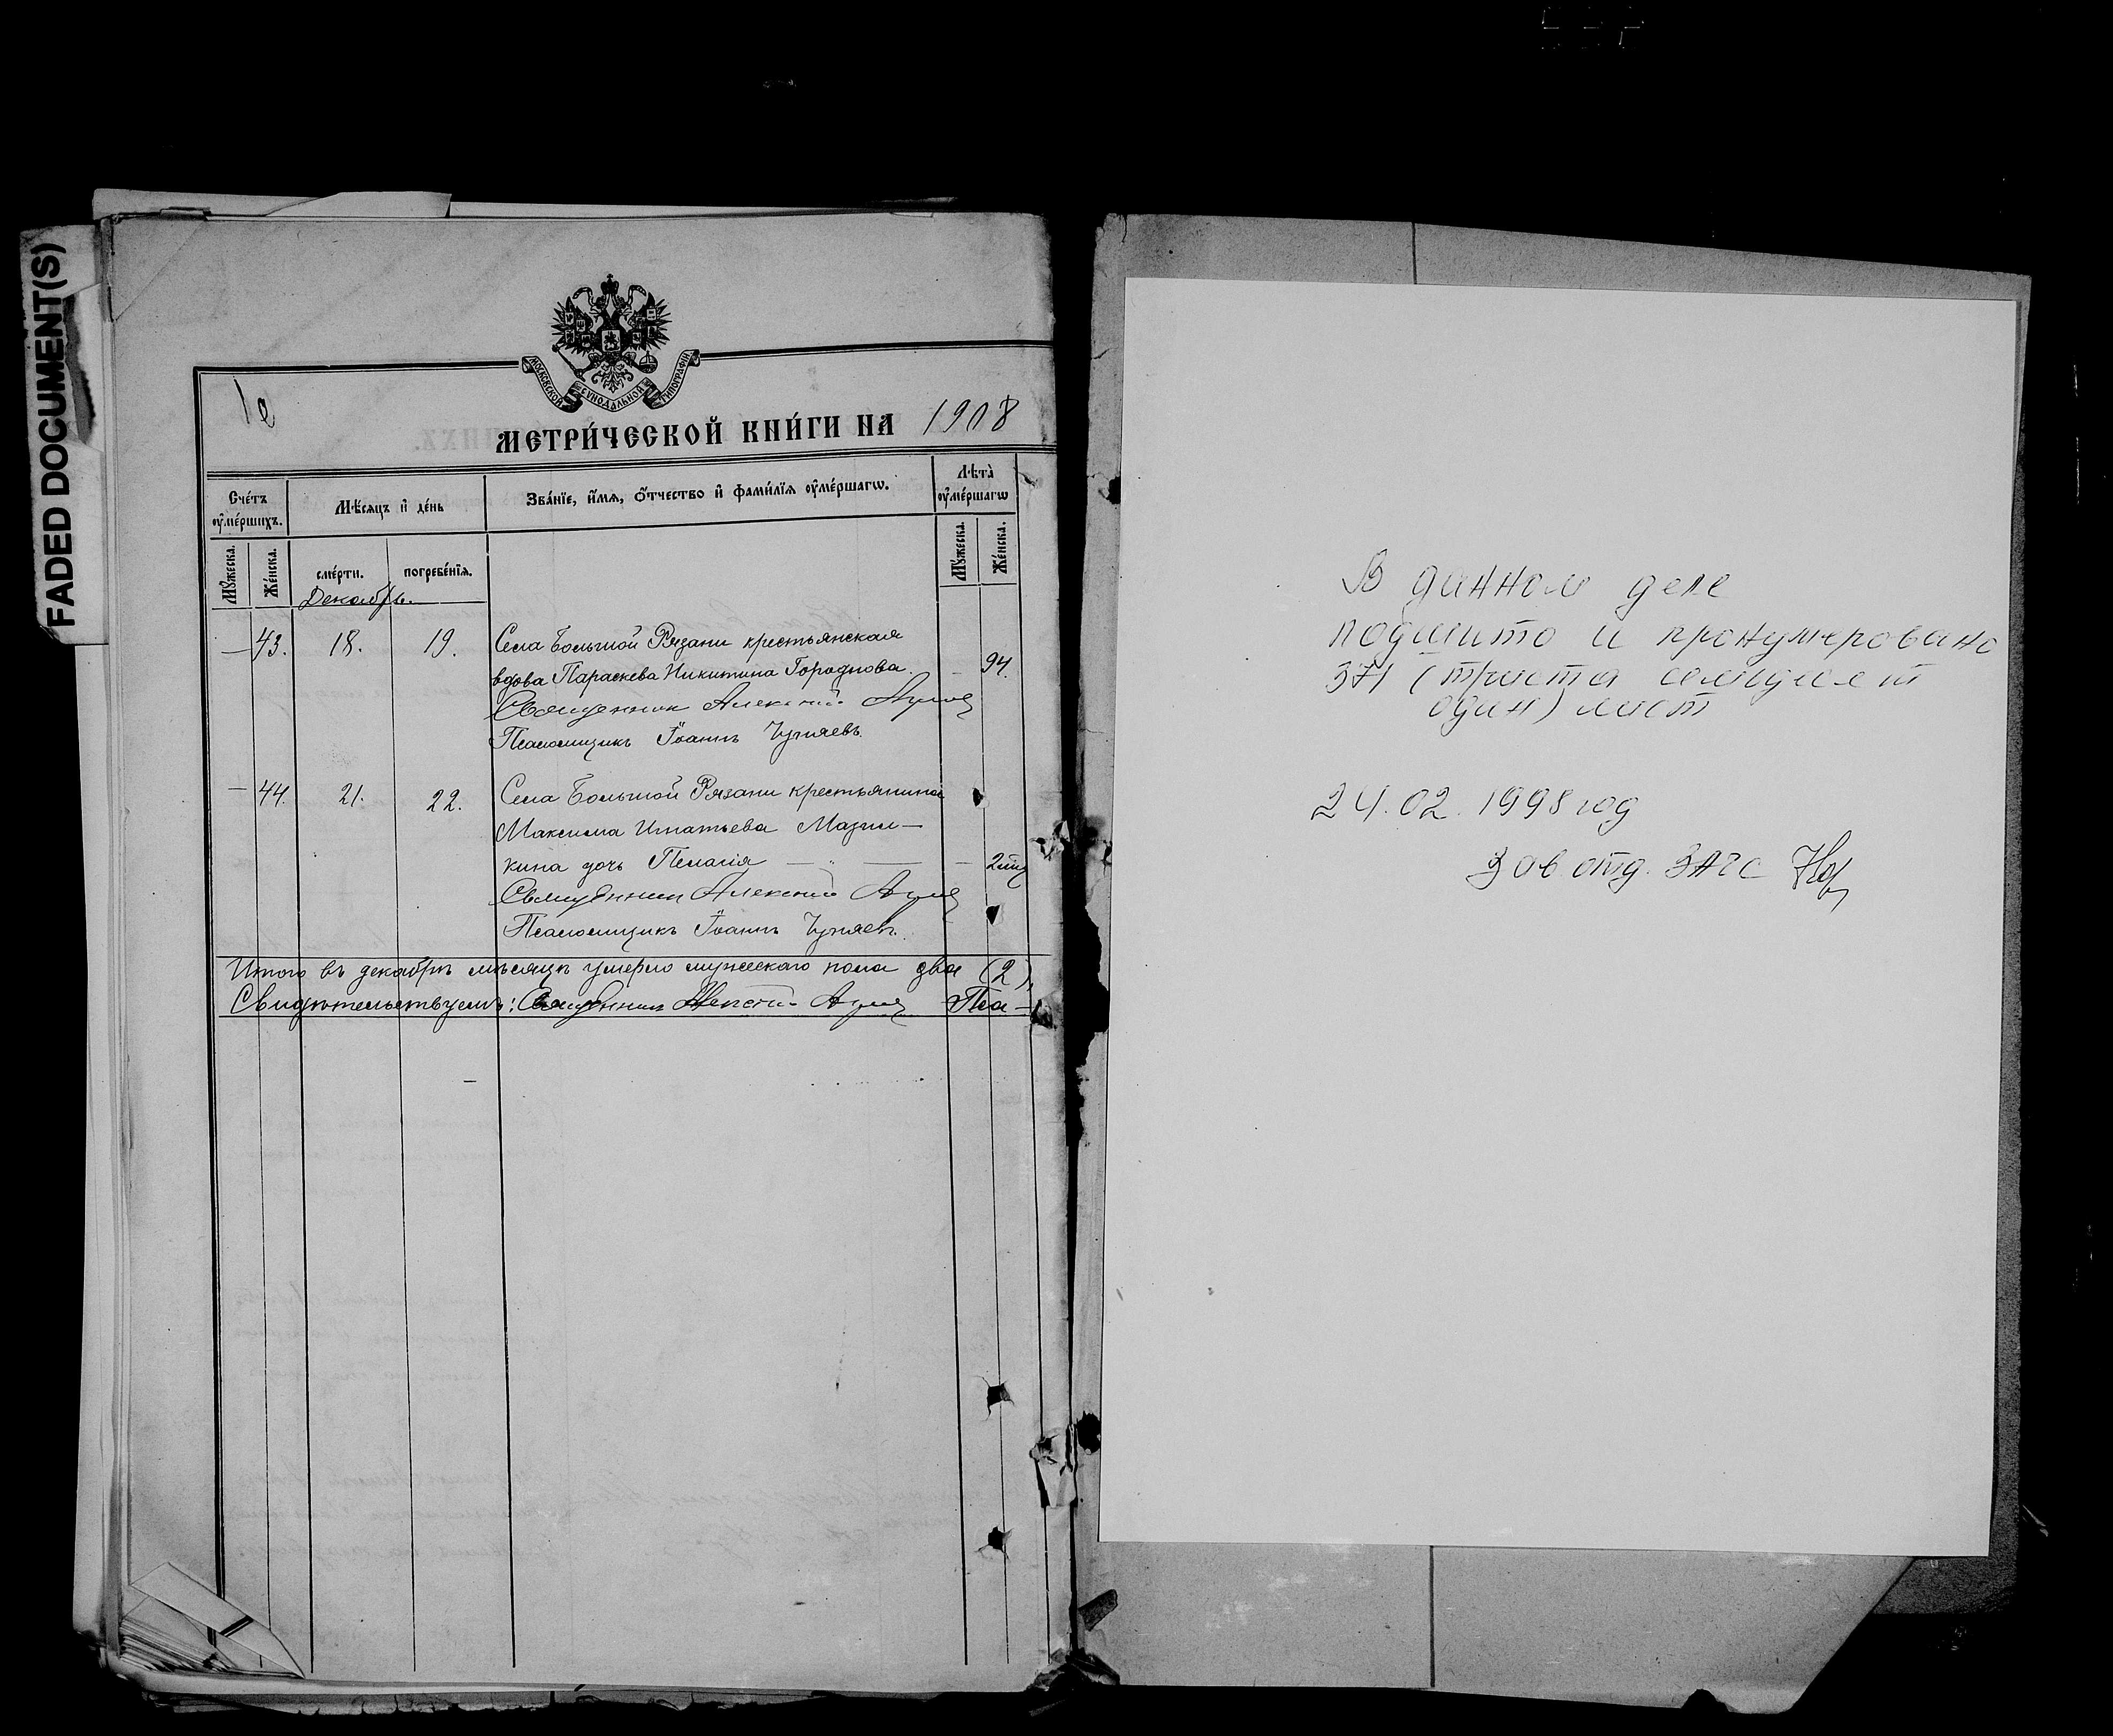 FADED DOCUMENT(S)
МОСКОВСКОЙ СѴНОДАЛЬНОЙ ТИПОГРАФІИ
МЕТРИ́ЧЕСКОЙ КНИ́ГИ НА 1908
Сче́тъ ᲂу҆ме́ршихъ.
Мѣ́сяцъ и҆ де́нь
Зва́нїе, и҆́мѧ, ѻ҆́тчество и҆ фами́лїѧ ᲂу҆ме́ршагѡ.
Лѣта̀ ᲂу҆ме́ршагѡ
Мꙋ́жеска.
Же́нска.
сме́рти.
погребе́нїѧ.
Мꙋ́жеска.
Же́нска.
Декабрь.
— 43. 18. 19. Села Большой Рязани крестьянская
вдова Параскева Никитина Городнова. — 94.
Священник Алексий
Псаломщикъ Іоаннъ Чупяевъ.
— 44. 21. 22. Села Большой Рязани крестьянина
Максима Игнатьева
кина дочь Пелагія — " — — 2
Священник Алексий
Псаломщикъ Іоаннъ Чупяевъ.
Итого въ декабрѣ мѣсяцѣ умерло мужескаго пола два (2),
Свидѣтельствуемъ: Священник Алексий Пса-
В данном деле
подшито и пронумеровано
371 (триста семьдесят
один) лист
24.02.1998 год
Зав отд. ЗАГС